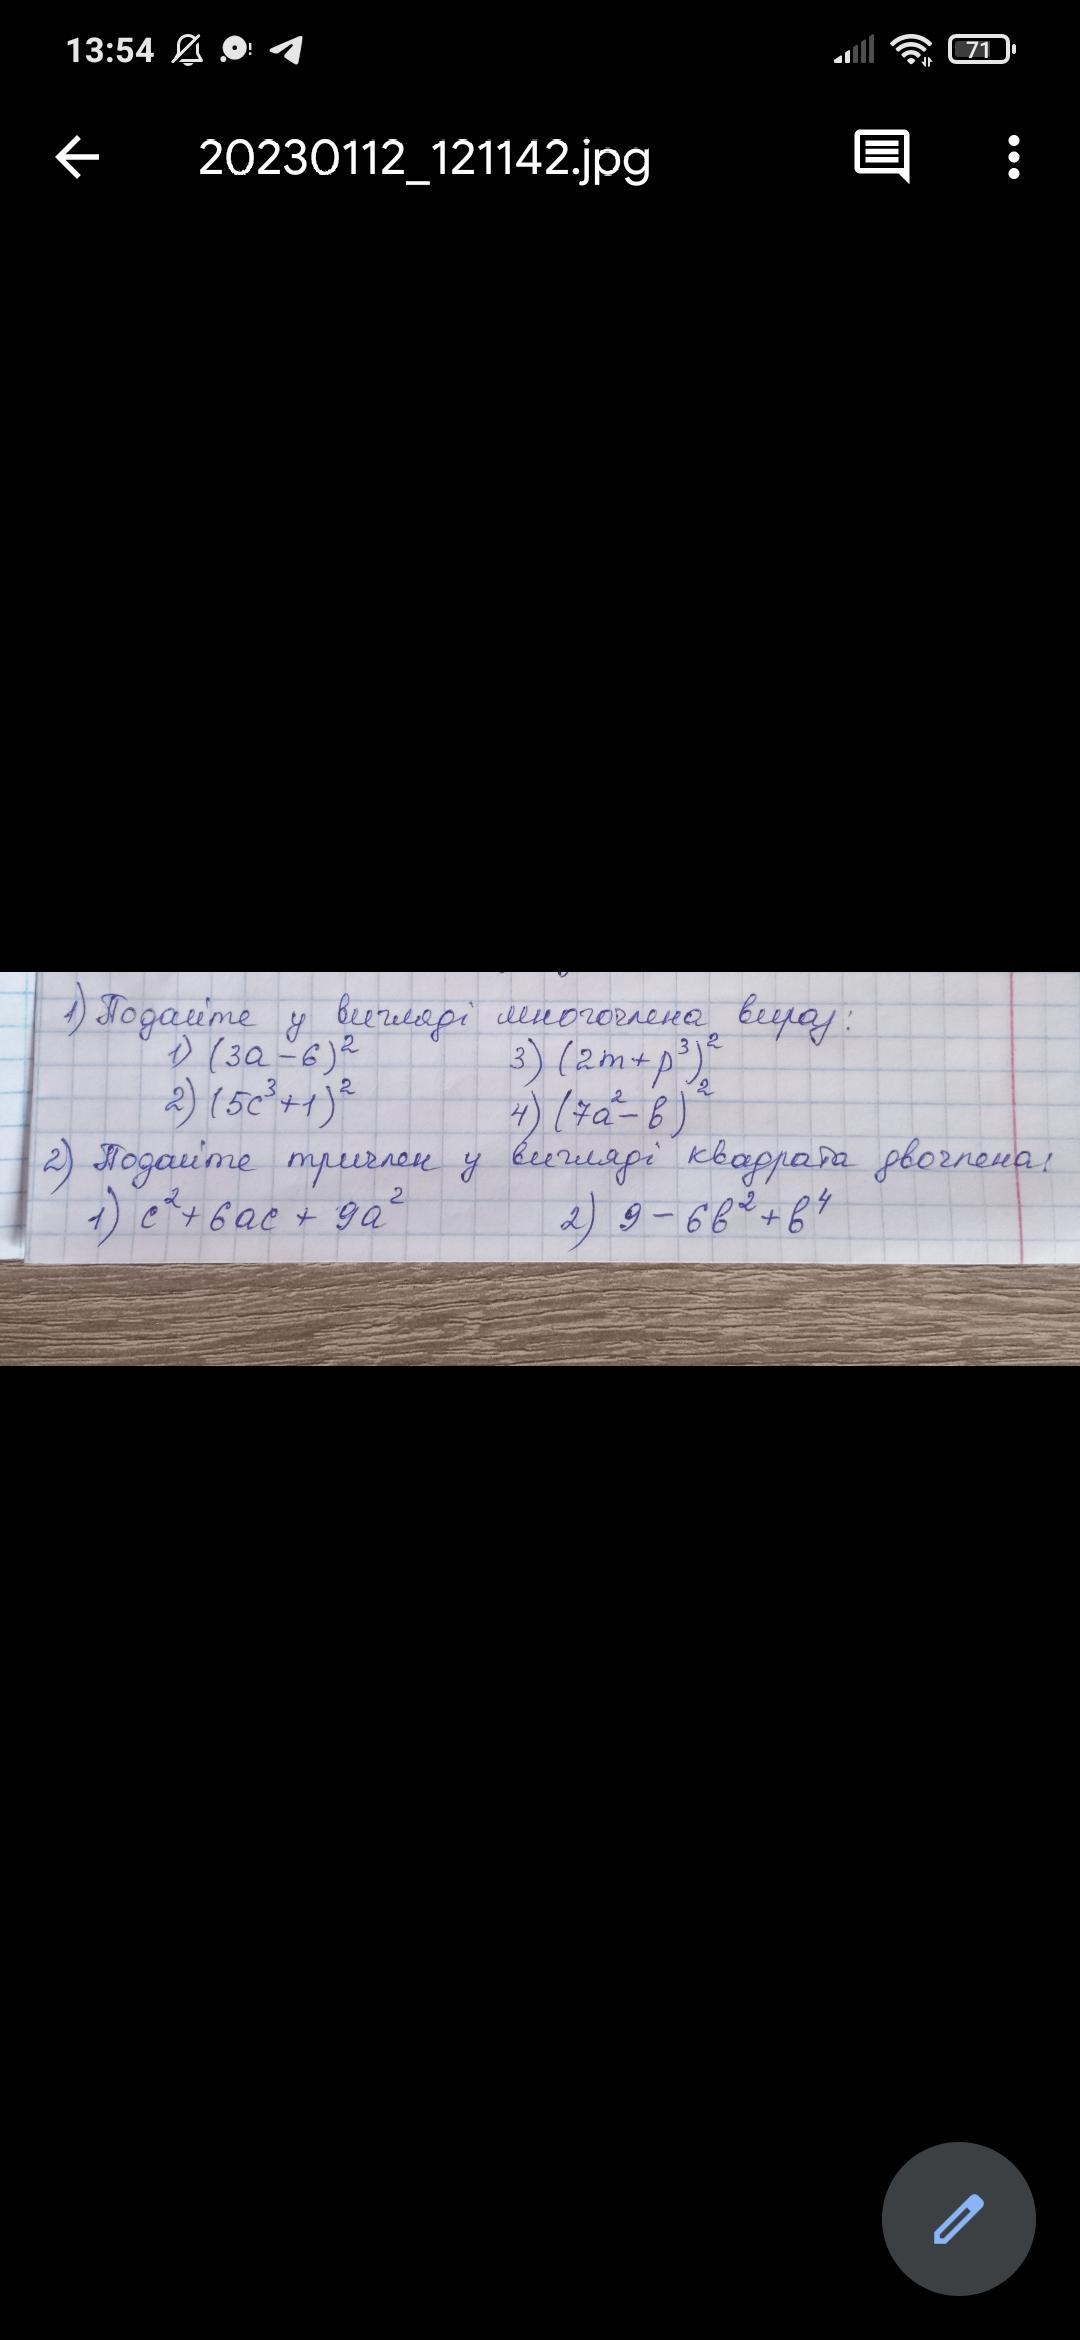 13:54 71
20230112_121142.jpg
1) Подайте у вигляді многочлена вираз:
1) (3a - 6)² 3) (2m + p³)²
2) (5c³ + 1)² 4) (7a² - b)²
2) Подайте тричлен у вигляді квадрата двочлена:
1) c² + 6ac + 9a² 2) 9 - 6b² + b⁴